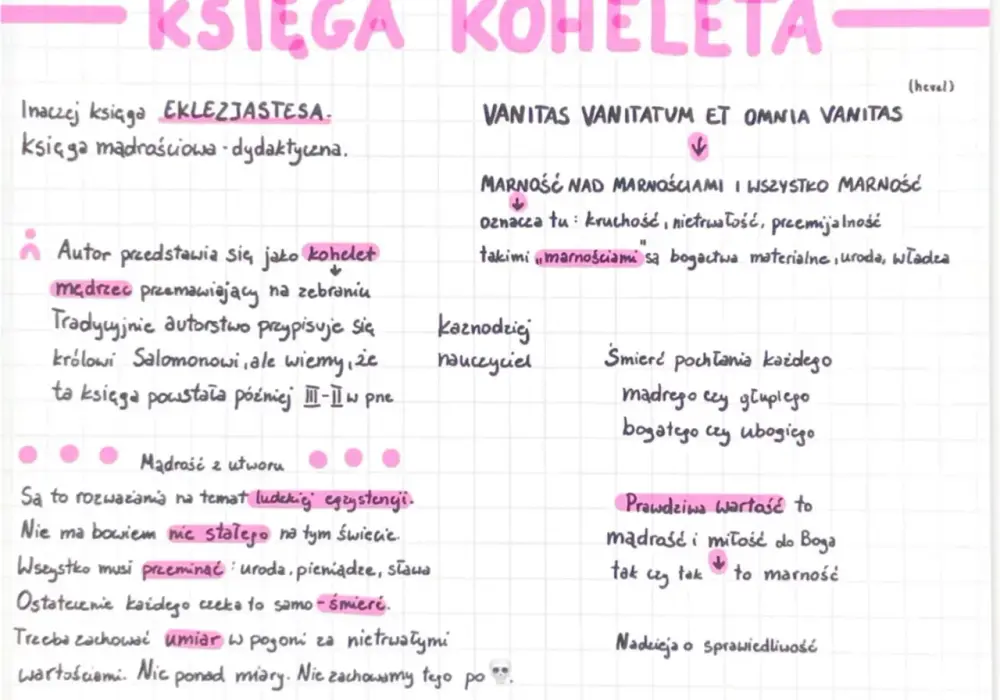 KSIĘGA KOHELETA
Inaczej księga EKLEZJASTESA.
Księga mądrościowa - dydaktyczna.
Autor przedstawia się jako kohelet
mędrzec przemawiający na zebraniu
Tradycyjnie autorstwo przypisuje się
królowi Salomonowi, ale wiemy, że
ta księga powstała później III-II w pne
kaznodziej
nauczyciel
Mądrość z utworu
Są to rozważania na temat ludzkiej egzystencji.
Nie ma bowiem nic stałego na tym świecie.
Wszystko musi przeminąć : uroda, pieniądze, sława
Ostatecznie każdego czeka to samo - śmierć.
Trzeba zachować umiar w pogoni za nietrwałymi
wartościami. Nic ponad miary. Nie zachowamy tego po 💀.
(hevel)
VANITAS VANITATUM ET OMNIA VANITAS
↓
MARNOŚĆ NAD MARNOŚCIAMI I WSZYSTKO MARNOŚĆ
↓
oznacza tu : kruchość, nietrwałość, przemijalność
takimi „marnościami" są bogactwa materialne, uroda, władza
Śmierć pochłania każdego
mądrego czy głupiego
bogatego czy ubogiego
Prawdziwa wartość to
mądrość i miłość do Boga
tak czy tak ↓ to marność
Nadzieja o sprawiedliwość